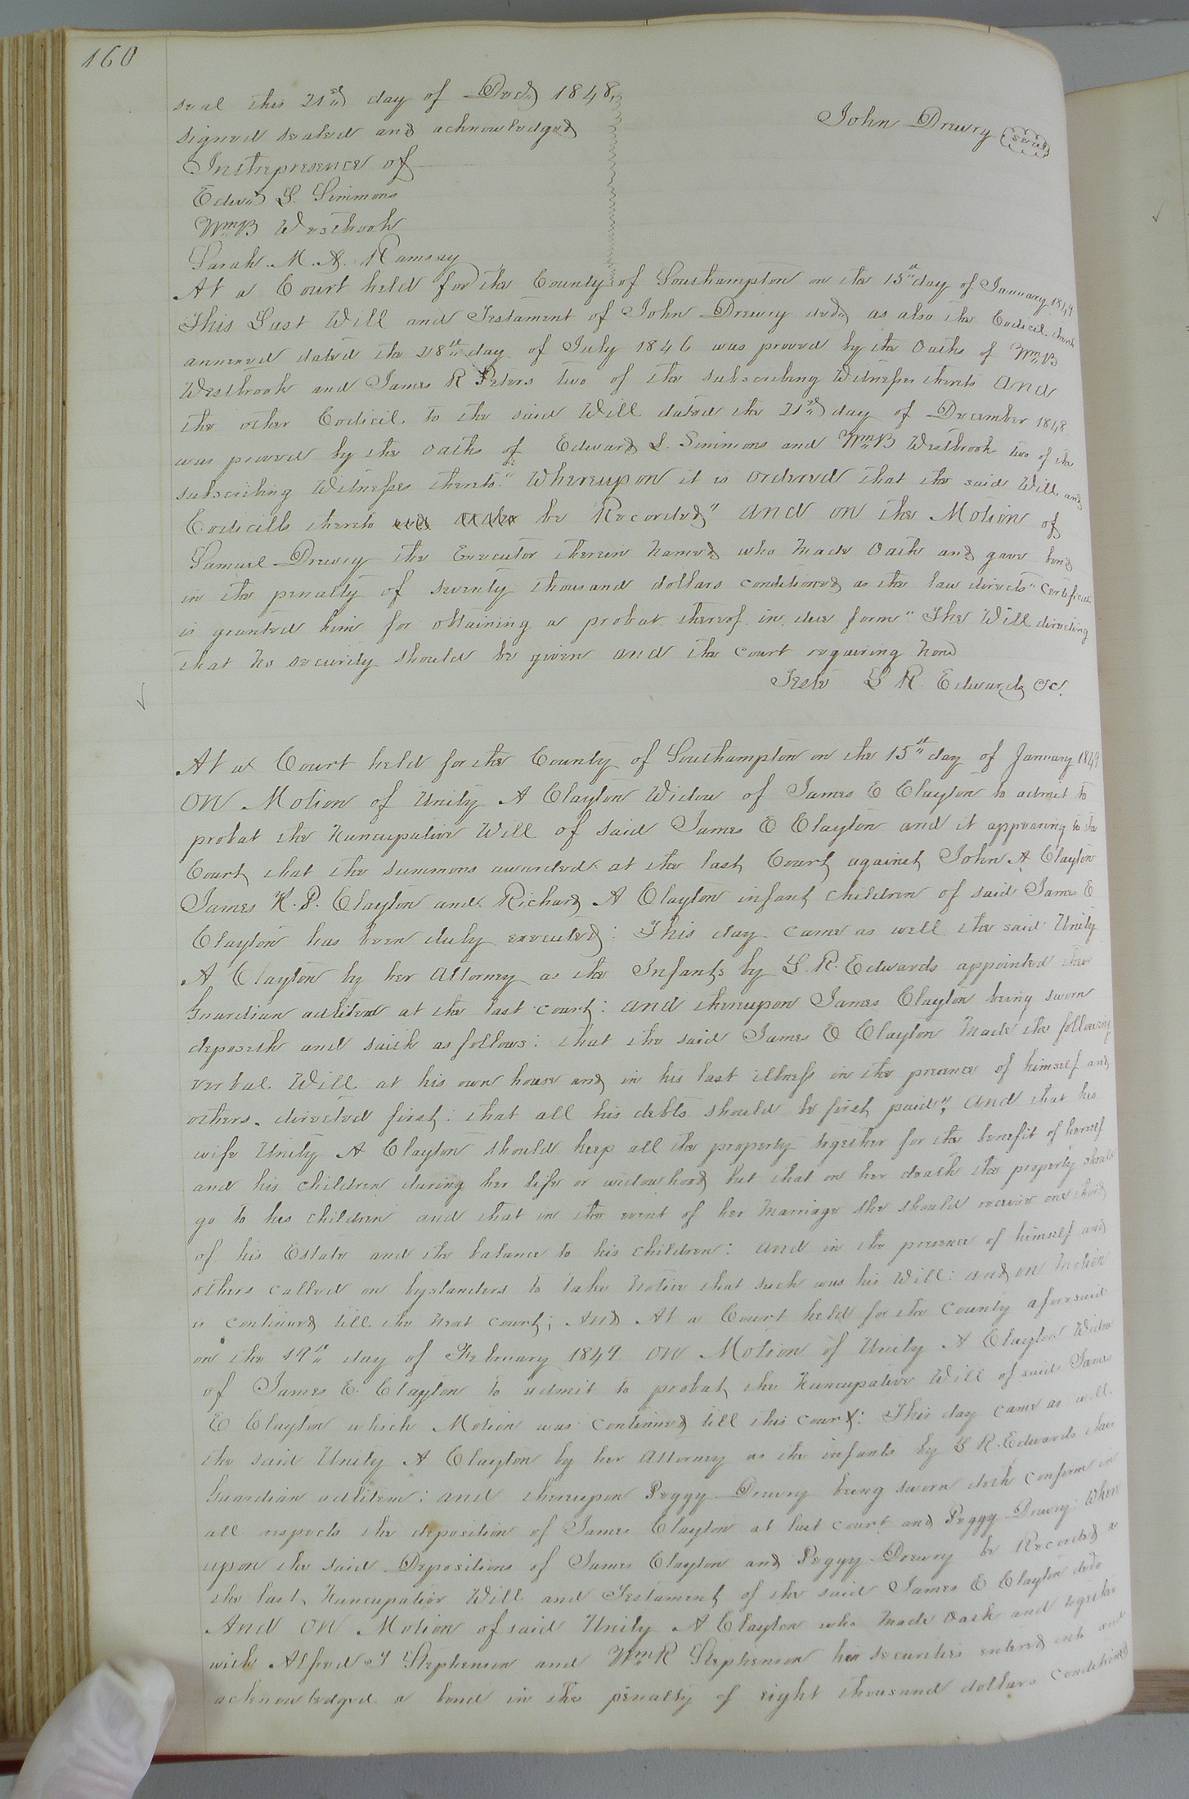 160
seal this 21st day of Decr 1848
John Drewry (seal)
signed sealed and acknowledged
In the presence of
Edwd L. Simmons
Wm B Westbrook
Sarah M. A. Ramsay
At a Court held for the County of Southampton on the 15th day of January 1849
This Last Will and Testament of John Drewry decd as also the Codicil thereto
annexed dated the 28th day of July 1846 was proved by the Oaths of Wm B
Westbrook and James R Peters two of the subscribing Witnesses thereto And
the other Codicil to the said Will dated the 21st day of December 1848
was proved by the oaths of Edward L. Simmons and Wm B Westbrook two of the
subscribing Witnesses thereto" Whereupon it is ordered that the said Will and
Codicills thereto be Recorded" And on the Motion of
Samuel Drewry the Executor therein named who made Oath and gave bond
in the penalty of seventy thousand dollars conditioned as the law directs" Certificate
is granted him for obtaining a probat thereof in due form" The Will directing
that no security should be given and the court requiring none
Teste L R Edwards CC.
At a Court held for the County of Southampton on the 15th day of January 1849
On Motion of Unity A Clayton Widow of James E Clayton to admit to
probat the Nuncupative Will of said James E Clayton and it appearing to the
Court that the summons awarded at the last Court against John A Clayton
James K. P. Clayton and Richard A Clayton infant children of said James E
Clayton has been duly executed: This day came as well the said Unity
A Clayton by her Attorney as the Infants by L. R. Edwards appointed their
Guardian adlitem at the last court: And thereupon James Clayton being sworn
deposeth and saith as follows: that the said James E Clayton Made the following
verbal Will at his own house and in his last illness in the presence of himself and
others. directed first: that all his debts should be first paid", And that his
wife Unity A Clayton should keep all the property together for the benefit of herself
and his children during her life or widowhood but that on her death the property should
go to his children and that in the event of her Marriage she should receive one third
of his Estate and the balance to his children: And in the presence of himself and
others called on bystanders to take Notice that such was his Will: And on motion
is continued till the next court; And At a Court held for the County aforesaid
on the 19th day of February 1849 On Motion of Unity A Clayton Widow
of James E. Clayton to admit to probat the Nuncupative Will of said James
E Clayton which Motion was continued till this court: This day came as well
the said Unity A Clayton by her Attorney as the infants by L R. Edwards their
Guardian adlitem: And thereupon Peggy Drewry being sworn doth confirm in
all respects the deposition of James Clayton at last court and Peggy Drewry When
upon the said Depositions of James Clayton and Peggy Drewry be Recorded as
the last Nuncupative Will and Testament of the said James E Clayton decd
And On Motion of said Unity A Clayton who made Oath and together
with Alfred J Stephenson and Wm R Stephenson her securities entered into and
acknowledged a bond in the penalty of eight thousand dollars conditioned